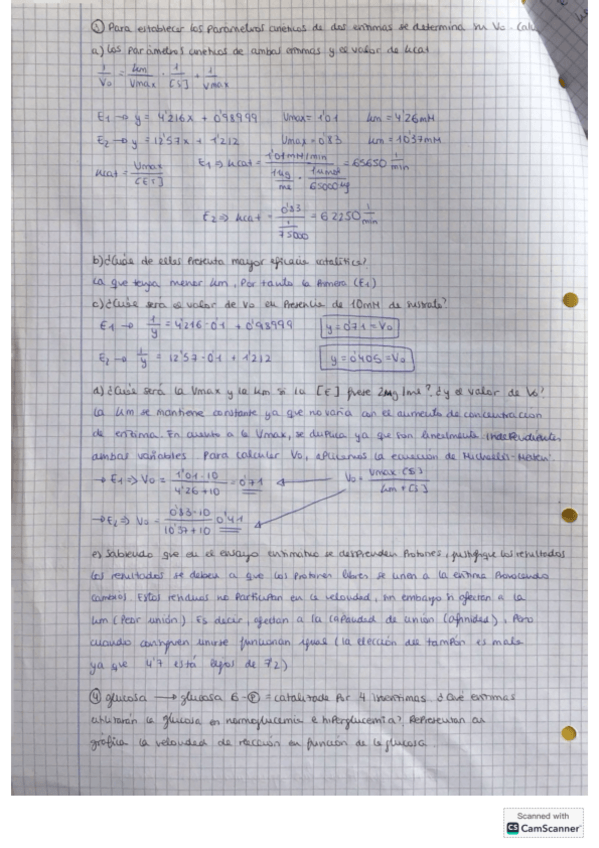 ① Para establecer los parámetros cinéticos de dos enzimas se determina su Vo.
a) Los parámetros cinéticos de ambas enzimas y el valor de kcat
1/Vo = Km/Vmax · 1/[S] + 1/Vmax
E1 → y = 4'216x + 0'98999 Vmax = 1'01 Km = 4'26mM
E2 → y = 12'57x + 1'212 Vmax = 0'83 Km = 10'37mM
Kcat = Vmax/[ET] E1 ⇒ Kcat = 1'01mM/min / (1ug/ml · 1umol/65000ug) = 65650 1/min
E2 ⇒ Kcat = 0'83 / (1/75000) = 62250 1/min
b) ¿Cuál de ellas presenta mayor eficacia catalítica?
La que tenga menor Km, por tanto la primera (E1)
c) ¿Cuál será el valor de Vo en presencia de 10mM de sustrato?
E1 → 1/y = 4'216·0'1 + 0'98999 y = 0'71 = Vo
E2 → 1/y = 12'57·0'1 + 1'212 y = 0'405 = Vo
d) ¿Cuál será la Vmax y la Km si la [E] fuese 2mg/ml? ¿y el valor de Vo?
La Km se mantiene constante ya que no varía con el aumento de concentración
de enzima. En cuanto a la Vmax, se duplica ya que son linealmente independientes
ambas variables. Para calcular Vo, aplicamos la ecuación de Michaelis-Menten:
→ E1 ⇒ Vo = 1'01·10 / 4'26+10 = 0'71 Vo = Vmax [S] / Km + [S]
→ E2 ⇒ Vo = 0'83·10 / 10'37+10 0'41
e) Sabiendo que en el ensayo enzimático se desprenden protones, justifique los resultados
Los resultados se deben a que los protones libres se unen a la enzima provocando
cambios. Estos residuos no participan en la velocidad, sin embargo si afectan a la
Km (peor unión) Es decir, afectan a la capacidad de unión (afinidad), pero
cuando consiguen unirse funcionan igual (la elección del tampón es mala
ya que 4'7 está lejos de 7'2)
④ glucosa → glucosa 6-Ⓟ = catalizada por 4 isoenzimas. ¿Qué enzimas
utilizarán la glucosa en normoglucemia e hiperglucemia?. Representan en
gráfica la velocidad de reacción en función de la glucosa.
Scanned with
CS CamScanner